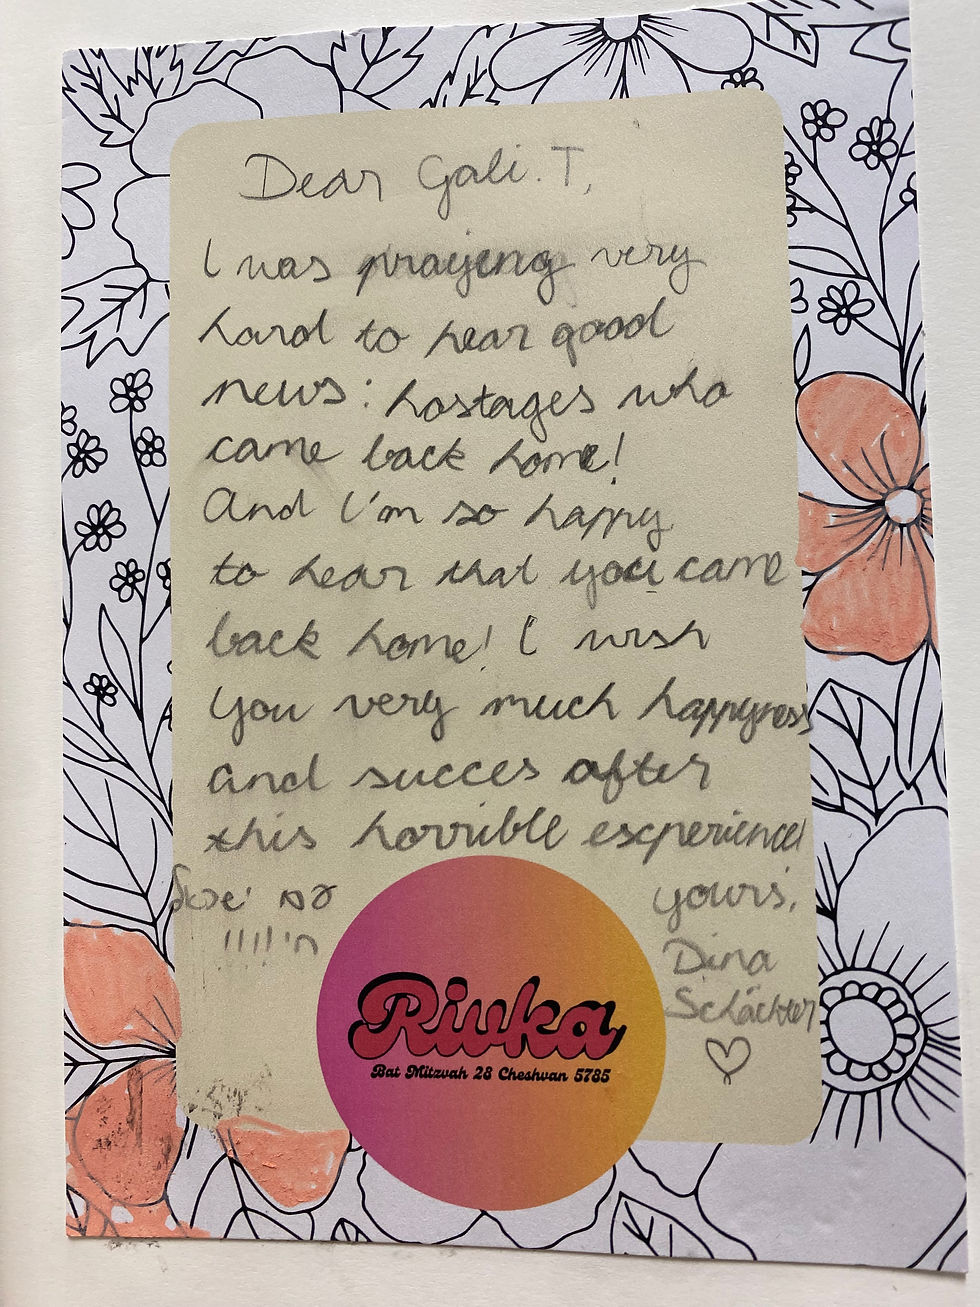 Dear Gali. T,
I was prayeing very
hard to hear good
news: hostages who
came back home!
And I'm so happy
to hear that you came
back home! I wish
you very much happyness
and succes after
this horrible experience!
עם ישראל
חי!!!!!
yours,
Dina
Schächter
Rivka
Bat Mitzvah 28 Cheshvan 5785